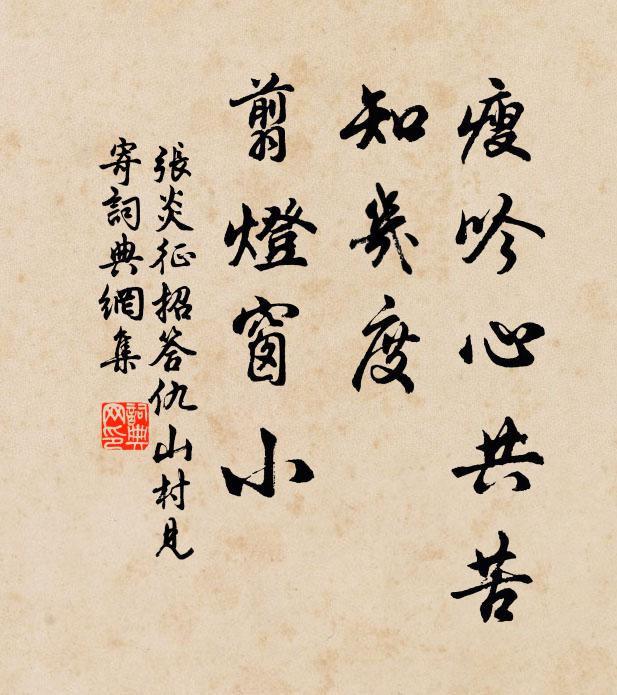 瘦吟心共苦
知幾度
翦燈窗小
張炎征招答仇山村見
寄詞典網集
詞典网印